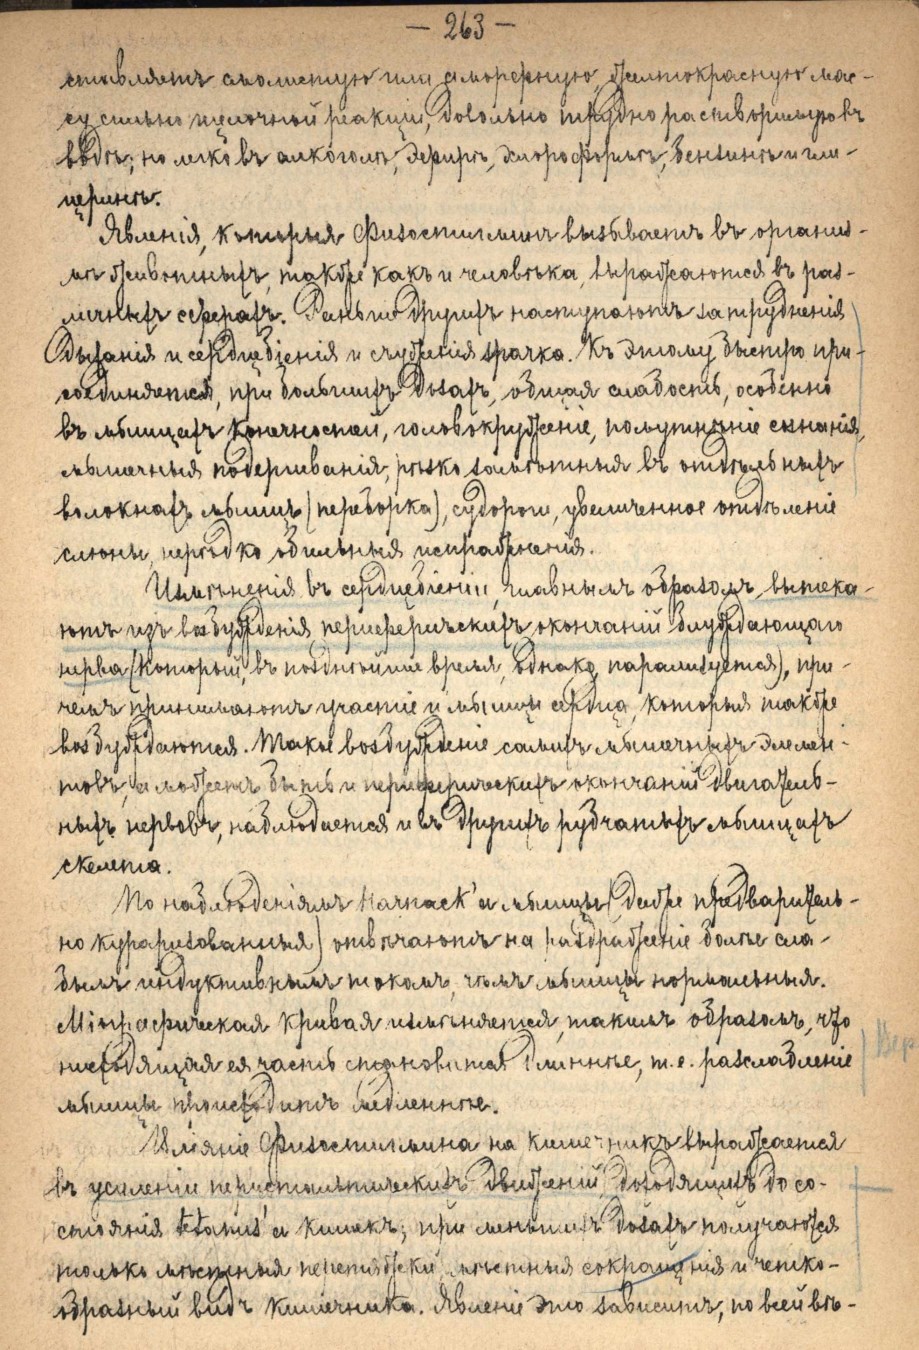 — 263 —
ставляетъ смолистую или аморфную, желтокрасную мас-
су сильно щелочной реакціи, довольно трудно растворимую въ
водѣ; но легко въ алкоголѣ, эфирѣ, хлороформѣ, бензинѣ и гли-
церинѣ.
Явленія, которыя Физостигминъ вызываетъ въ организ-
мѣ животныхъ, также какъ и человѣка, выражаются въ раз-
личныхъ сферахъ. Раньше другихъ наступаютъ затрудненія
дыханія и сердцебіенія и съуженія зрачка. Къ этому быстро при-
соединяется, при большихъ дозахъ, общая слабость, особенно
въ мышцахъ конечностей, головокруженіе, помутнѣніе сознанія,
мышечныя подергиванія, рѣзко замѣтныя въ отдѣльныхъ
волокнахъ мышцъ (переборка), судороги, увеличенное отдѣленіе
слюны, нерѣдко обильныя испражненія.
Измѣненія въ сердцебіеніи, главнымъ образомъ, вытека-
ютъ изъ возбужденія периферическихъ окончаній блуждающаго
нерва (который, въ позднѣйшее время, однако, парализуется), при-
чемъ принимаютъ участіе и мышцы сердца, которыя также
возбуждаются. Такое возбужденіе самихъ мышечныхъ элемен-
товъ, а можетъ быть и периферическихъ окончаній двигатель-
ныхъ нервовъ, наблюдается и въ другихъ рубчатыхъ мышцахъ
скелета.
По наблюденіямъ Harnack'а мышцы (даже предваритель-
но кураризованныя) отвѣчаютъ на раздраженіе болѣе сла-
бымъ индуктивнымъ токомъ, чѣмъ мышцы нормальныя.
Міографическая кривая измѣняется, такимъ образомъ, что
нисходящая ея часть становится длиннѣе, т.е. разслабленіе
мышцы происходитъ медленнѣе.
Вліяніе Физостигмина на кишечникъ выражается
въ усиленіи перистальтическихъ движеній, доходящихъ до со-
стоянія tetanus'а кишекъ; при меньшихъ дозахъ получаются
только мѣстныя перетяжки, мѣстныя сокращенія и четко-
образный видъ кишечника. Явленіе это зависитъ, по всей вѣ-